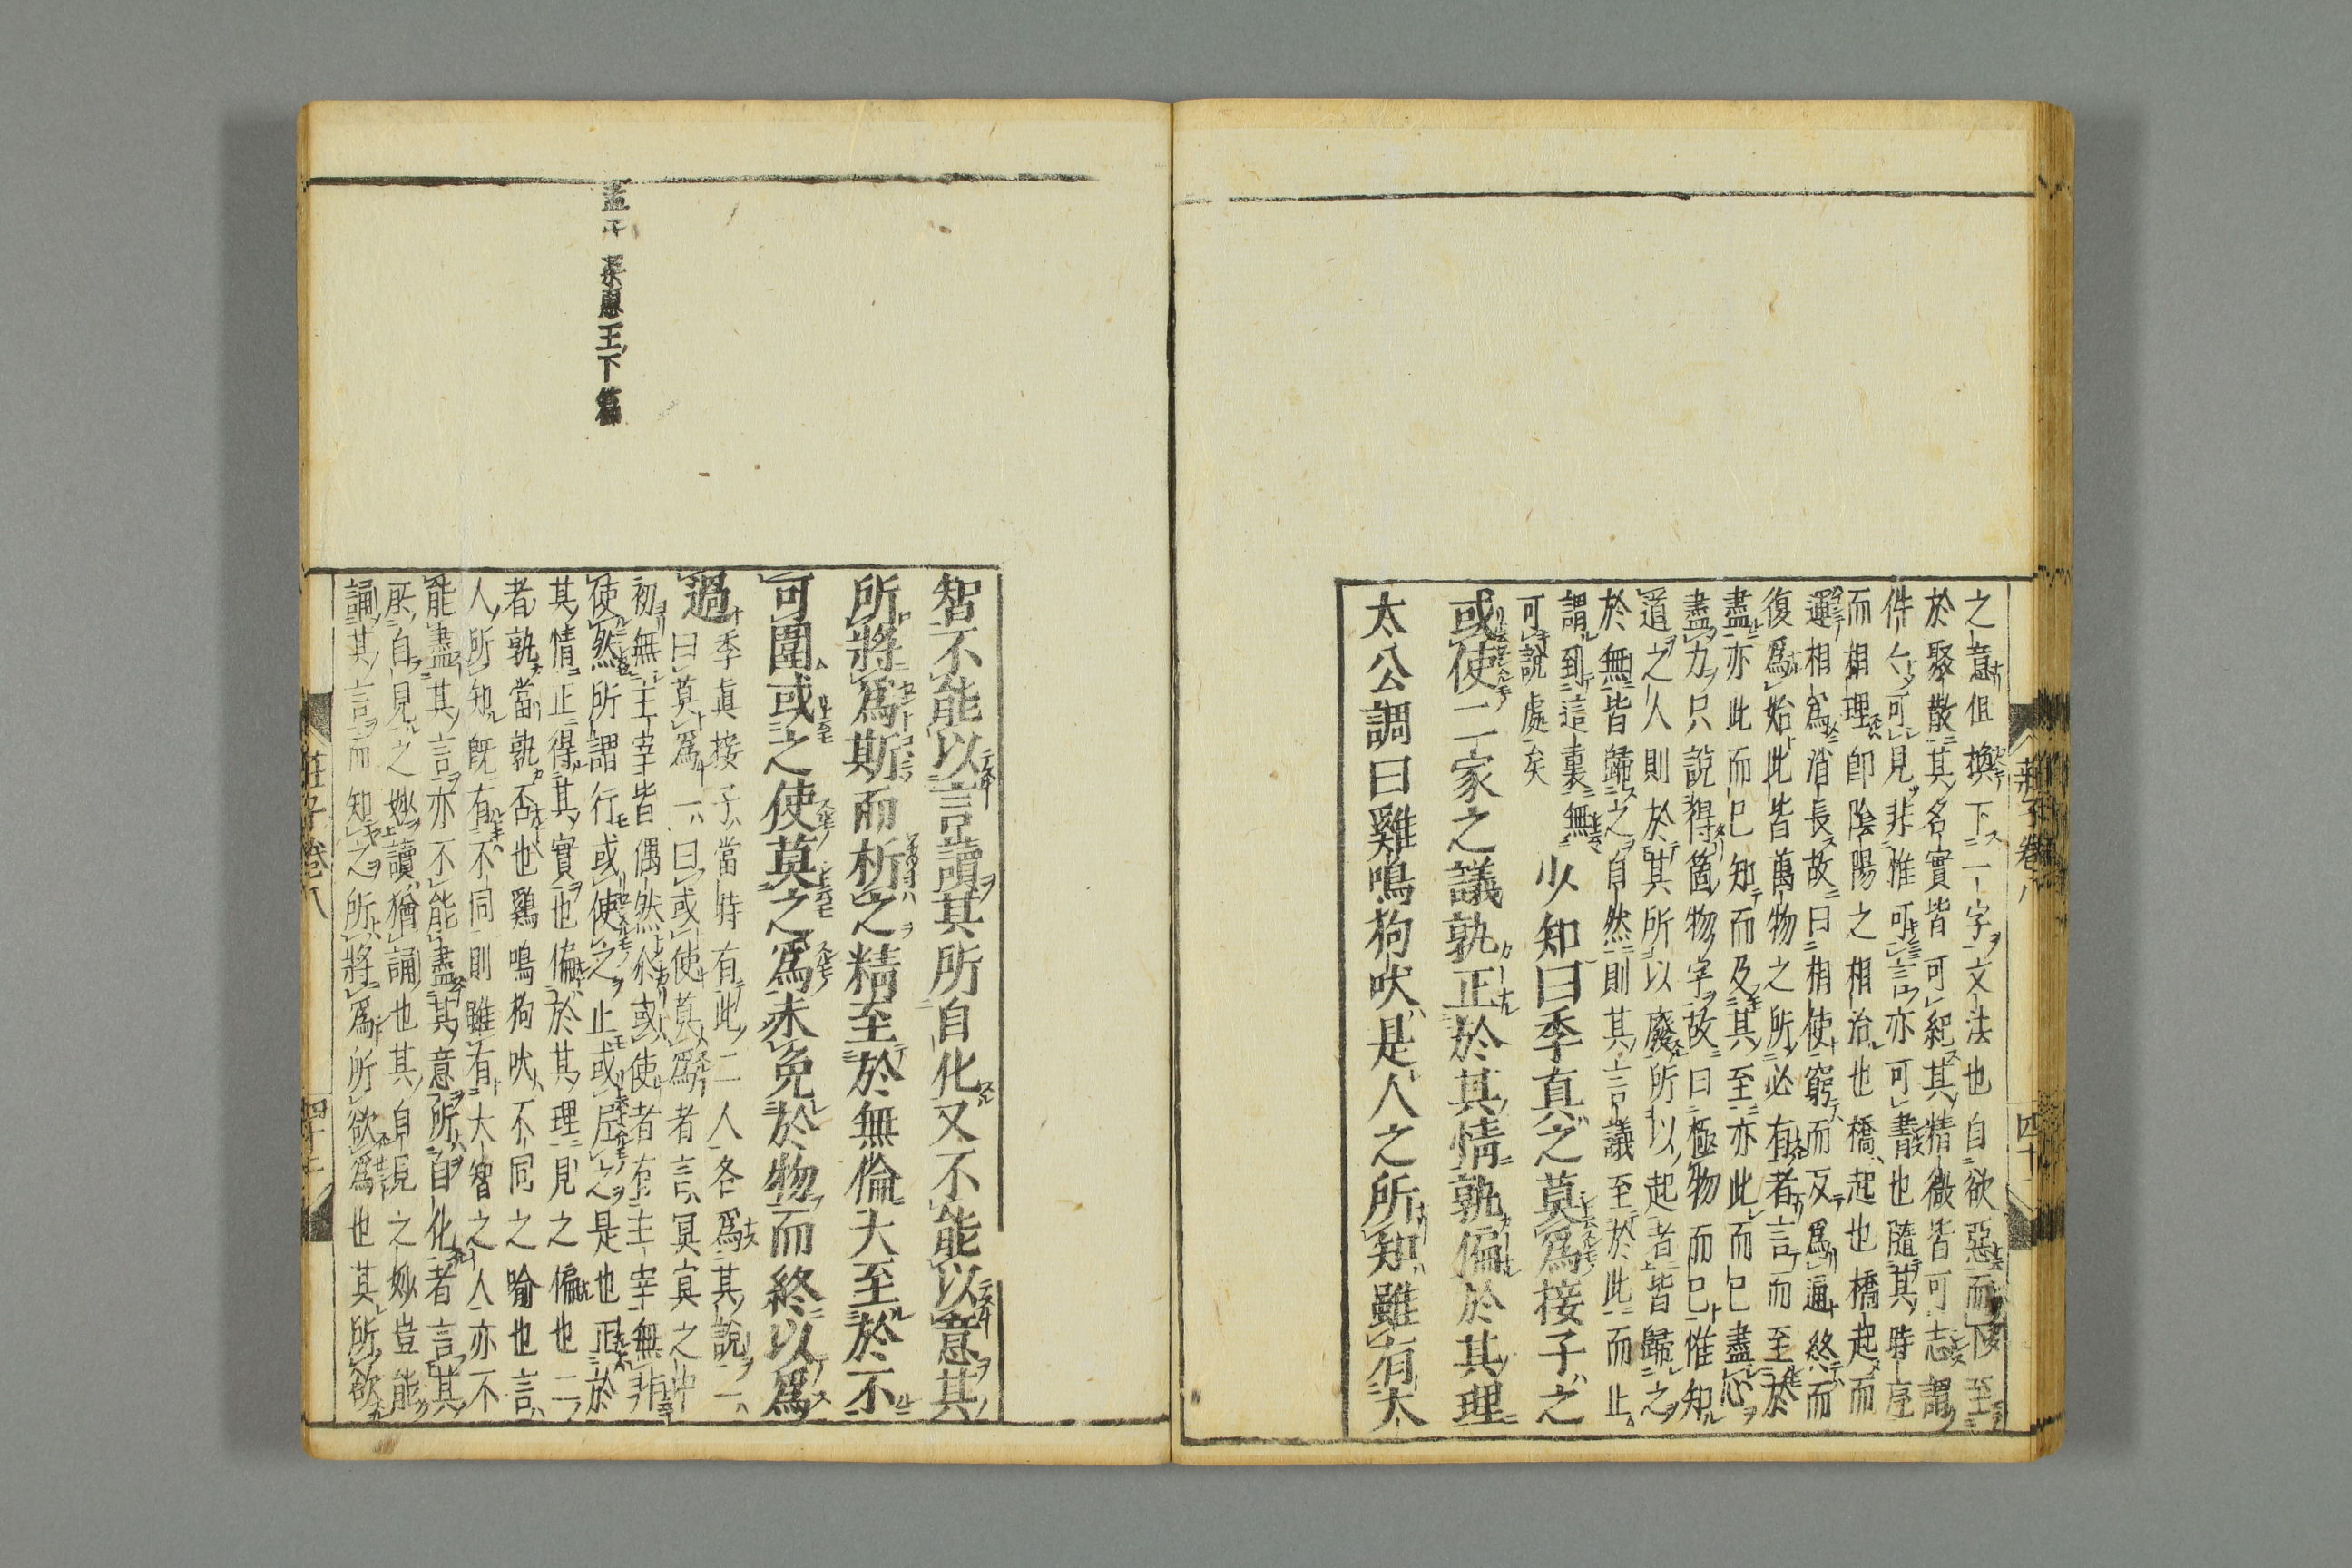 之意但換下一字文法也自欲惡而下至
於聚散其名實皆可紀其精微皆可志謂
件〻可見非惟可言亦可書也隨其時序
而相理即陰陽之相治也橋起也橋起而
運相為消長故曰相使窮而反為逼終而
復爲始此皆萬物之所必有者言而至於
盡亦此而已知而及其至亦此而已盡心
盡力只說得箇物字故曰極物而已惟知
道之人則於其所以廢所以起者皆歸之
於無皆歸之自然則其言議至於此而止
謂到這裏無
可說處矣
少知曰季真之莫為接子之
或使二家之議孰正於其情孰偏於其理
太公調曰雞鳴狗吠是人之所知雖有大
莊子卷八
四十一
智不能以言讀其所自化又不能以意其
所將爲斯而析之精至於無倫大至於不
可圍或之使莫之爲未免於物而終以爲
過
季眞接子當時有此二人各爲其說一
曰莫爲一曰或使莫爲者言冥冥之中
初無主宰皆偶然尒或使者有主宰無非
使然所謂行或使之止或尼之是也正於
其情正得其實也偏於其理見之偏也二
者孰當孰否也鷄鳴狗吠不同之喻也言
人所知旣有不同則雖有大智之人亦不
能盡其言亦不能盡其意所自化者言其
所自見之妙讀猶誦也其自見之妙豈能
誦其言而知之所將爲所欲爲也其所欲
莊子卷八
四十二
孟子 梁惠王下篇